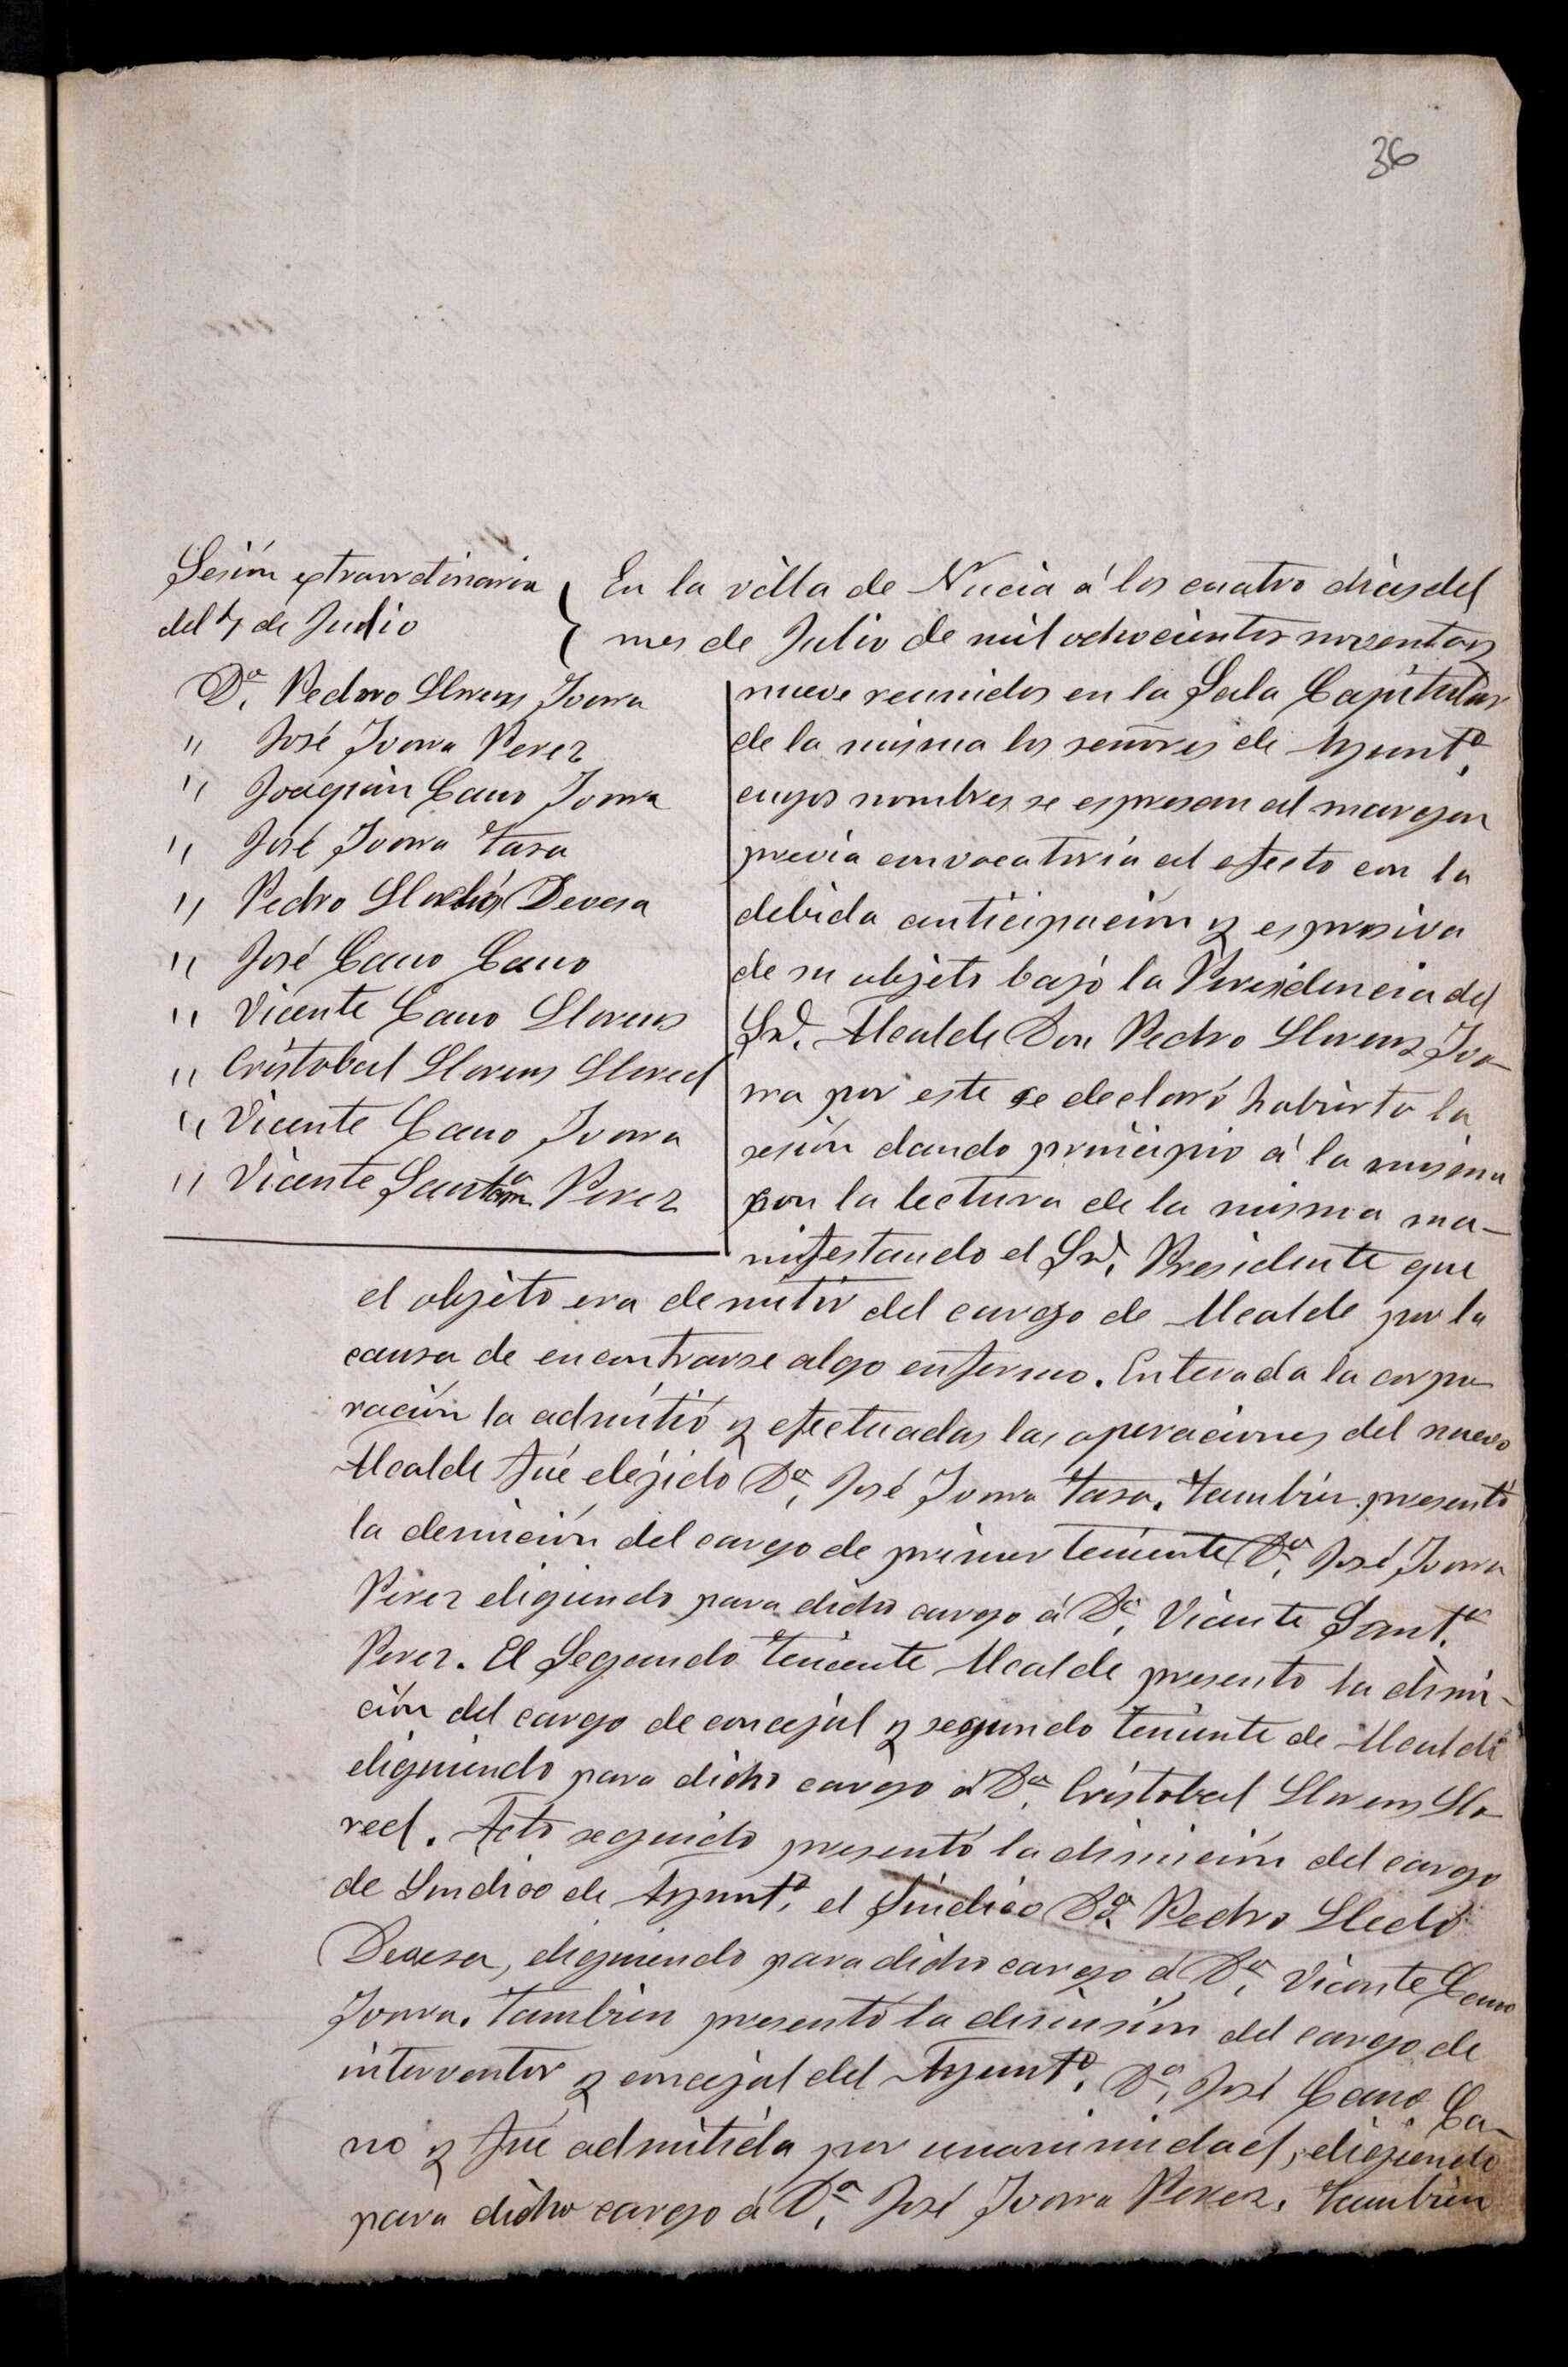 36
Sesión extraordinaria
del 4 de Julio
Dn. Pedro Llorens Ivorra
" José Ivorra Perez
" Joaquin Cano Ivorra
" José Ivorra Tasa
" Pedro Lledó Devesa
" José Cano Cano
" Vicente Cano Llorens
" Cristobal Llorens Llored
" Vicente Cano Ivorra
" Vicente Santa Perez
En la villa de Nucia á los cuatro dias del
mes de Julio de mil ochocientos noventa y
nueve reunidos en la Sala Capitular
de la misma los señores de Ayunto.
cuyos nombres se espresan al margen
previa convocatoria al efecto con la
debida anticipación y espresiva
de su objeto bajo la Presidencia del
Sr. Alcalde Don Pedro Llorens Ivo-
rra por este se declaró habierta la
sesión dando principio á la misma
con la lectura de la misma ma-
nifestando el Sr. Presidente que
el objeto era demitir del cargo de Alcalde por la
causa de encontrarse algo enfermo. Enterada la corpo-
ración la admitió y efectuadas las operaciones del nuevo
Alcalde fué elejido Dn. José Ivorra Tasa. Tambien presentó
la demición del cargo de primer teniente Dn. José Ivorra
Perez eligiendo para dicho cargo á Dn. Vicente Santa.
Perez. El Segundo Teniente Alcalde presento la dimi-
ción del cargo de concejal y segundo teniente de Alcalde
eligiendo para dicho cargo á Dn. Cristobal Llorens Llo-
red. Acto seguido presentó la dimición del cargo
de Sindico de Ayunto. el Sindico Dn. Pedro Lledó
Devesa, eligiendo para dicho cargo á Dn. Vicente Cano
Ivorra. Tambien presentó la dimisión del cargo de
interventor y concejal del Ayunto. Dn. José Cano Ca-
no y fué admitida por unanimidad, eligiendo
para dicho cargo á Dn. José Ivorra Perez. Tambien